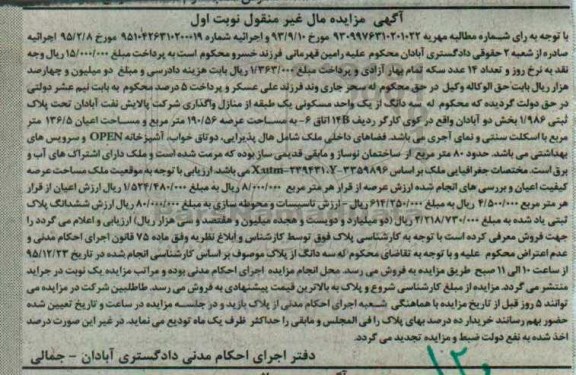 آگهی مزایده مال غیر منقول نوبت اول
با توجه به رای شماره مطالبه مهریه ۹۳۰۹۹۷۶۳۱۰۲۰۱۰۲۲ مورخ ۹۳/۹/۱۰ و اجرائیه شماره ۹۵۱۰۴۲۶۳۱۰۲۰۰۰۱۹ مورخ ۹۵/۲/۸ اجرائیه
صادره از شعبه ۲ حقوقی دادگستری آبادان محکوم علیه رامین قهرمانی فرزند خسرو محکوم است به پرداخت مبلغ ۱۵/۰۰۰/۰۰۰ ریال وجه
نقد به نرخ روز و تعداد ۱۴ عدد سکه تمام بهار آزادی و پرداخت مبلغ ۱/۳۶۳/۰۰۰ ریال بابت هزینه دادرسی و مبلغ دو میلیون و چهارصد
هزار ریال بابت حق الوکاله وکیل در حق محکوم له سحر جاری وند فرزند علی عسکر و پرداخت ۵ درصد محکوم به بابت نیم عشر دولتی
در حق دولت گردیده که محکوم له سه دانگ از یک واحد مسکونی یک طبقه از منازل واگذاری شرکت پالایش نفت آبادان تحت پلاک
ثبتی ۱/۹۸۶ بخش دو آبادان واقع در کوی کارگر ردیف 14B اتاق ۶- به مساحت عرصه ۱۹۰/۵۶ متر مربع و مساحت اعیان ۱۳۶/۵ متر
مربع با اسکلت سنتی و نمای آجری می باشد. فضاهای داخلی ملک شامل هال پذیرایی، دوتاق خواب، آشپزخانه OPEN و سرویس های
بهداشتی می باشد. حدود ۸۰ متر مربع از ساختمان نوساز و مابقی قدیمی ساز بوده که مرمت شده است و ملک دارای اشتراک های آب و
برق است. مختصات جغرافیایی ملک بر اساس Xutm=۲۳۹۴۳۱،Y=۳۳۵۹۸۹۶ می باشد. ارزیابی با توجه به موقعیت ملک مساحت عرصه
کیفیت اعیان و بررسی های انجام شده ارزش عرصه از قرار هر متر مربع ۸/۰۰۰/۰۰۰ ریال به مبلغ ۱/۵۲۴/۴۸۰/۰۰۰ ریال ارزش اعیان از قرار
هر متر مربع ۴/۵۰۰/۰۰۰ ریال به مبلغ ۶۱۴/۲۵۰/۰۰۰ ریال - ارزش تاسیسات و محوطه سازی به مبلغ ۸۰/۰۰۰/۰۰۰ ریال ارزش ششدانگ پلاک
ثبتی یاد شده به مبلغ ۲/۲۱۸/۷۳۰/۰۰۰ ریال (دو میلیارد و دویست و هجده میلیون و هفتصد و سی هزار ریال) ارزیابی و اعلام می گردد را
جهت فروش معرفی کرده است با توجه به کارشناسی پلاک فوق توسط کارشناس و ابلاغ نظریه وفق ماده ۷۵ قانون اجرای احکام مدنی و
عدم اعتراض محکوم علیه و با توجه به تقاضای محکوم له سه دانگ از پلاک موصوف بر اساس کارشناسی انجام شده در تاریخ ۹۵/۱۲/۲۳
از ساعت ۱۰ الی ۱۱ صبح طریق مزایده به فروش می رسد. محل انجام مزایده اجرای احکام مدنی بوده و مراتب مزایده یک نوبت در جراید
منتشر می گردد. مزایده از مبلغ کارشناسی شروع و پلاک به بالاترین قیمت پیشنهادی به فروش می رسد. طالبین شرکت در مزایده می
توانند ۵ روز قبل از تاریخ مزایده با هماهنگی شعبه اجرای احکام مدنی از پلاک بازید و در جلسه مزایده در ساعت و تاریخ تعیین شده
حضور بهم رسانند خریدار ده درصد بهای پلاک را فی المجلس و مابقی را حداکثر ظرف یک ماه تودیع می نماید. در غیر این صورت درصد
اخذ شده به نفع دولت ضبط و مزایده تجدید می گردد.
دفتر اجرای احکام مدنی دادگستری آبادان - جمالی
۱۲۰